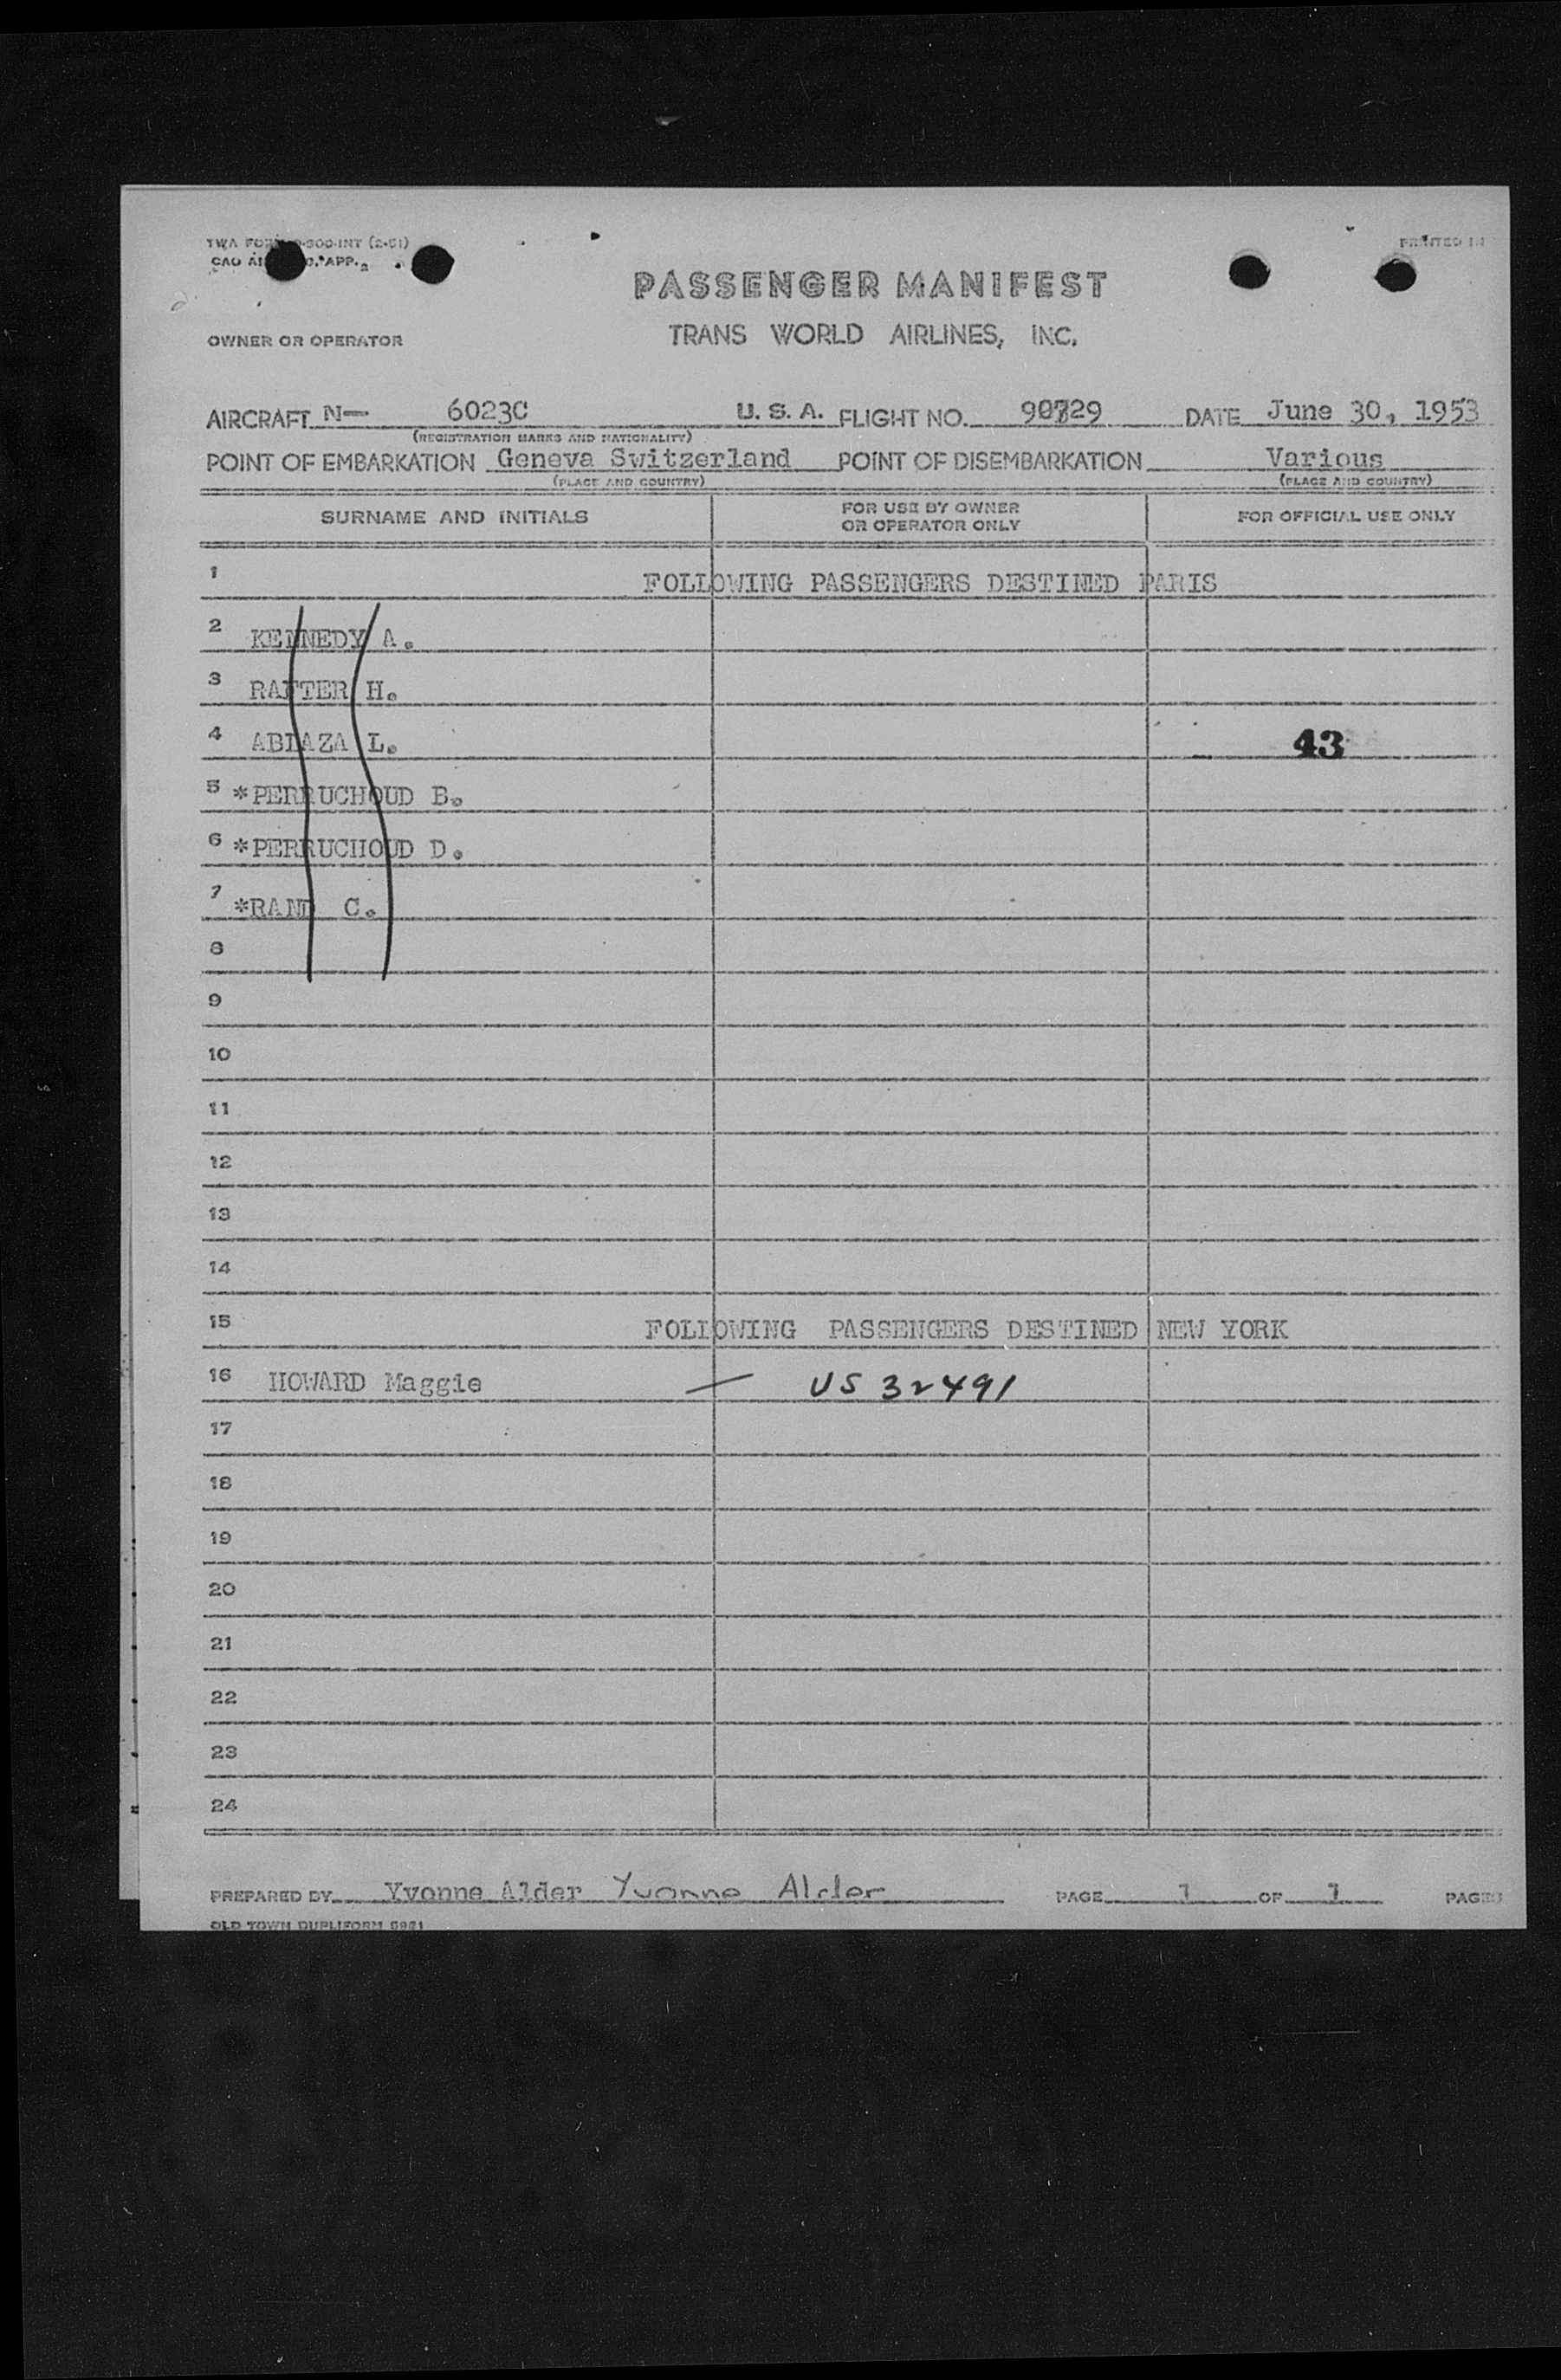 PRINTED IN
PASSENGER MANIFEST
OWNER OR OPERATOR
TRANS WORLD AIRLINES, INC.
AIRCRAFT N— 6023C U. S. A. FLIGHT NO. DATE June 30, 1953
(REGISTRATION MARKS AND NATIONALITY)
POINT OF EMBARKATION Geneva Switzerland POINT OF DISEMBARKATION Various
(PLACE AND COUNTRY) (PLACE AND COUNTRY)
SURNAME AND INITIALS FOR USE BY OWNER OR OPERATOR ONLY FOR OFFICIAL USE ONLY
1 FOLLOWING PASSENGERS DESTINED PARIS
2 KENNEDY A.
3 H.
4 L. 43
5 *PERRUCHOUD B.
6 *PERRUCHOUD D.
7 *RAND C.
8
9
10
11
12
13
14
15 FOLLOWING PASSENGERS DESTINED NEW YORK
16 HOWARD Maggie — US 32491
17
18
19
20
21
22
23
24
PREPARED BY Yvonne Alder Yvonne Alder PAGE 1 OF 1 PAGES
OLD TOWN DUPLIFORM